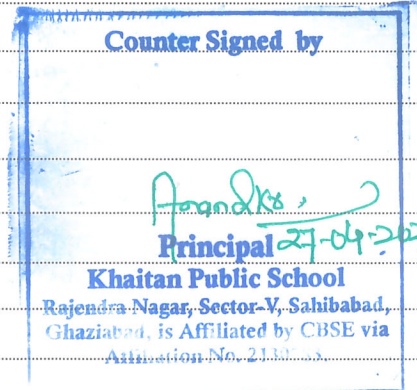 Counter Signed by
Principal 27-04-202
Khaitan Public School
Rajendra Nagar, Sector-V, Sahibabad,
Ghaziabad, is Affiliated by CBSE via
Affiliation No.